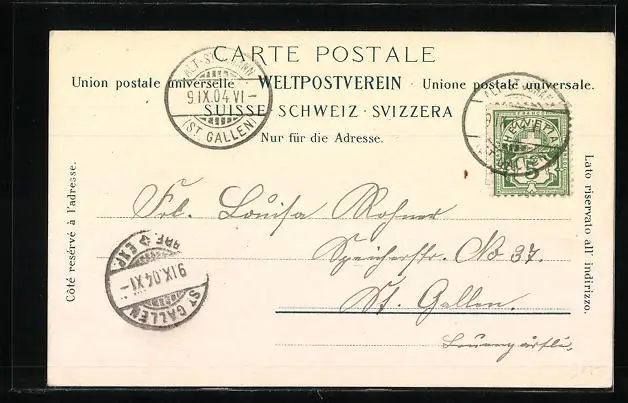 CARTE POSTALE
Union postale universelle · WELTPOSTVEREIN · Unione postale universale.
SUISSE · SCHWEIZ · SVIZZERA
Nur für die Adresse.
9.IX.04.VI-
(ST. GALLEN)
HELVETIA
FRANCO
5
Côté reservé à l'adresse.
Lato riservato all'indirizzo.
Frl. Louisa Rohner
Speicherstr. No 37.
St. Gallen.
BRF. EXP.
9.IX.04.XI-
ST. GALLEN